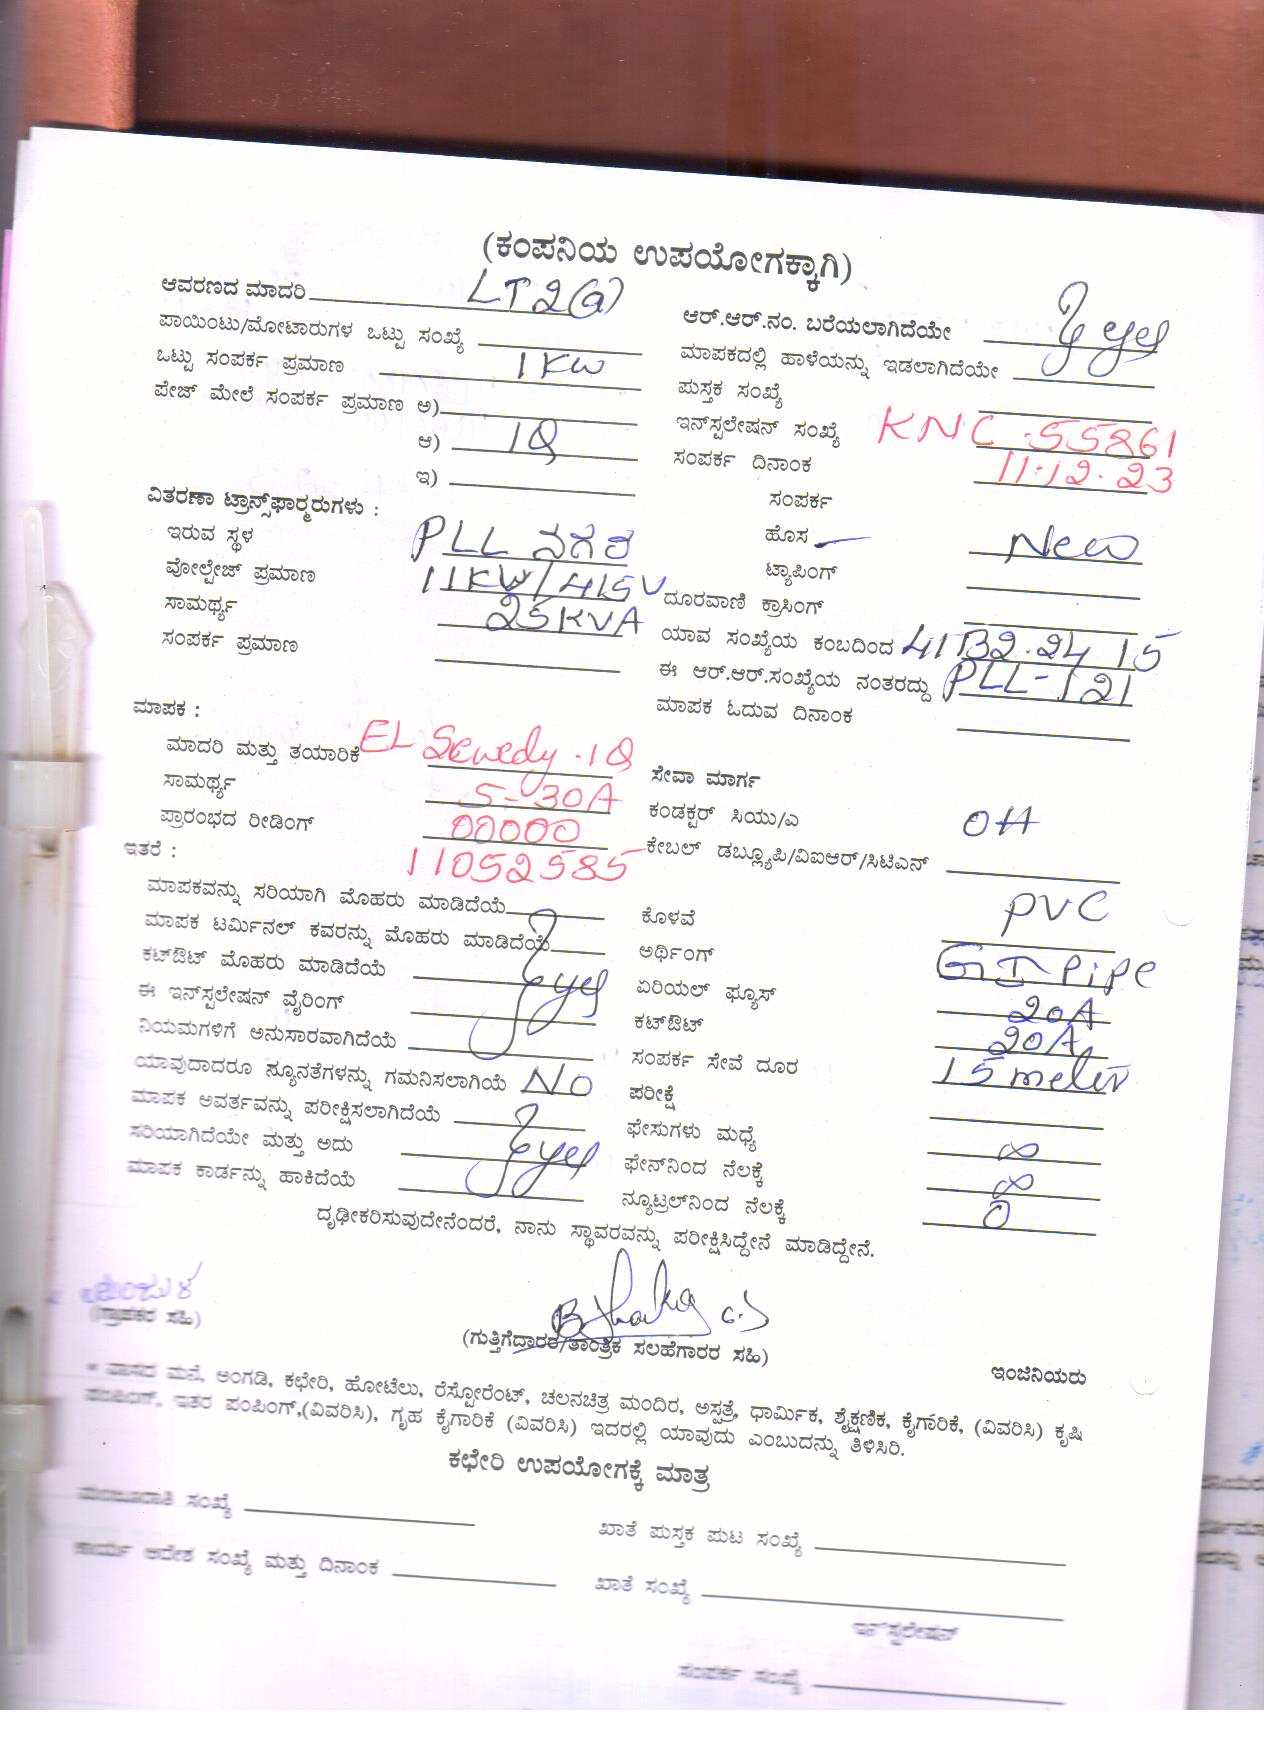 (ಕಂಪನಿಯ ಉಪಯೋಗಕ್ಕಾಗಿ)
ಆವರಣದ ಮಾದರಿ LT2(a)
ಪಾಯಿಂಟು/ಮೋಟಾರುಗಳ ಒಟ್ಟು ಸಂಖ್ಯೆ
ಒಟ್ಟು ಸಂಪರ್ಕ ಪ್ರಮಾಣ 1KW
ಪೇಜ್ ಮೇಲೆ ಸಂಪರ್ಕ ಪ್ರಮಾಣ ಅ)
ಆ) 1Q
ಇ)
ಆರ್.ಆರ್.ನಂ. ಬರೆಯಲಾಗಿದೆಯೇ yes
ಮಾಪಕದಲ್ಲಿ ಹಾಳೆಯನ್ನು ಇಡಲಾಗಿದೆಯೇ
ಪುಸ್ತಕ ಸಂಖ್ಯೆ
ಇನ್‌ಸ್ಟಲೇಷನ್ ಸಂಖ್ಯೆ KNC.55861
ಸಂಪರ್ಕ ದಿನಾಂಕ 11.12.23
ವಿತರಣಾ ಟ್ರಾನ್ಸ್‌ಫಾರ್‍ಮರುಗಳು :
ಇರುವ ಸ್ಥಳ PLL ನಗರ
ವೋಲ್ಟೇಜ್ ಪ್ರಮಾಣ 11KW/415V
ಸಾಮರ್ಥ್ಯ 25KVA
ಸಂಪರ್ಕ ಪ್ರಮಾಣ
ಸಂಪರ್ಕ
ಹೊಸ New
ಟ್ಯಾಪಿಂಗ್
ದೂರವಾಣಿ ಕ್ರಾಸಿಂಗ್
ಯಾವ ಸಂಖ್ಯೆಯ ಕಂಬದಿಂದ 41132.24 15
ಈ ಆರ್.ಆರ್.ಸಂಖ್ಯೆಯ ನಂತರದ್ದು PLL-121
ಮಾಪಕ ಓದುವ ದಿನಾಂಕ
ಮಾಪಕ :
ಮಾದರಿ ಮತ್ತು ತಯಾರಿಕೆ EL Sewedy.1Q
ಸಾಮರ್ಥ್ಯ 5-30A
ಪ್ರಾರಂಭದ ರೀಡಿಂಗ್ 00000
ಇತರೆ : 11052585
ಸೇವಾ ಮಾರ್ಗ
ಕಂಡಕ್ಟರ್ ಸಿಯು/ಎ OH
ಕೇಬಲ್ ಡಬ್ಲ್ಯೂಪಿ/ವಿಐಆರ್/ಸಿಟಿಎನ್
ಮಾಪಕವನ್ನು ಸರಿಯಾಗಿ ಮೊಹರು ಮಾಡಿದೆಯೆ
ಮಾಪಕ ಟರ್ಮಿನಲ್ ಕವರನ್ನು ಮೊಹರು ಮಾಡಿದೆಯೆ
ಕಟ್‌ಔಟ್ ಮೊಹರು ಮಾಡಿದೆಯೆ yes
ಈ ಇನ್‌ಸ್ಟಲೇಷನ್ ವೈರಿಂಗ್
ನಿಯಮಗಳಿಗೆ ಅನುಸಾರವಾಗಿದೆಯೆ
ಯಾವುದಾದರೂ ನ್ಯೂನತೆಗಳನ್ನು ಗಮನಿಸಲಾಗಿಯೆ NO
ಮಾಪಕ ಅವರ್ತವನ್ನು ಪರೀಕ್ಷಿಸಲಾಗಿದೆಯೆ
ಸರಿಯಾಗಿದೆಯೇ ಮತ್ತು ಅದು yes
ಮಾಪಕ ಕಾರ್ಡನ್ನು ಹಾಕಿದೆಯೆ
ಕೊಳವೆ PVC
ಅರ್ಥಿಂಗ್ GI Pipe
ಏರಿಯಲ್ ಫ್ಯೂಸ್ 20A
ಕಟ್‌ಔಟ್ 20A
ಸಂಪರ್ಕ ಸೇವೆ ದೂರ 15 meter
ಪರೀಕ್ಷೆ
ಫೇಸುಗಳು ಮಧ್ಯೆ ∞
ಫೇನ್‌ನಿಂದ ನೆಲಕ್ಕೆ ∞
ನ್ಯೂಟ್ರಲ್‌ನಿಂದ ನೆಲಕ್ಕೆ 0
ದೃಢೀಕರಿಸುವುದೇನೆಂದರೆ, ನಾನು ಸ್ಥಾವರವನ್ನು ಪರೀಕ್ಷಿಸಿದ್ದೇನೆ ಮಾಡಿದ್ದೇನೆ.
(ಗ್ರಾಹಕರ ಸಹಿ)
(ಗುತ್ತಿಗೆದಾರರ/ತಾಂತ್ರಿಕ ಸಲಹೆಗಾರರ ಸಹಿ)
ಇಂಜಿನಿಯರು
* ವಾಸದ ಮನೆ, ಅಂಗಡಿ, ಕಛೇರಿ, ಹೋಟೆಲು, ರೆಸ್ಟೋರೆಂಟ್, ಚಲನಚಿತ್ರ ಮಂದಿರ, ಅಸ್ಪತ್ರೆ, ಧಾರ್ಮಿಕ, ಶೈಕ್ಷಣಿಕ, ಕೈಗಾರಿಕೆ, (ವಿವರಿಸಿ) ಕೃಷಿ
ಪಂಪಿಂಗ್, ಇತರ ಪಂಪಿಂಗ್,(ವಿವರಿಸಿ), ಗೃಹ ಕೈಗಾರಿಕೆ (ವಿವರಿಸಿ) ಇದರಲ್ಲಿ ಯಾವುದು ಎಂಬುದನ್ನು ತಿಳಿಸಿರಿ.
ಕಛೇರಿ ಉಪಯೋಗಕ್ಕೆ ಮಾತ್ರ
ಮಂಜೂರಾತಿ ಸಂಖ್ಯೆ
ಖಾತೆ ಪುಸ್ತಕ ಪುಟ ಸಂಖ್ಯೆ
ಕಾರ್ಯ ಆದೇಶ ಸಂಖ್ಯೆ ಮತ್ತು ದಿನಾಂಕ
ಖಾತೆ ಸಂಖ್ಯೆ
ಇನ್‌ಸ್ಟಲೇಷನ್
ಸಂಪರ್ಕ ಸಂಖ್ಯೆ